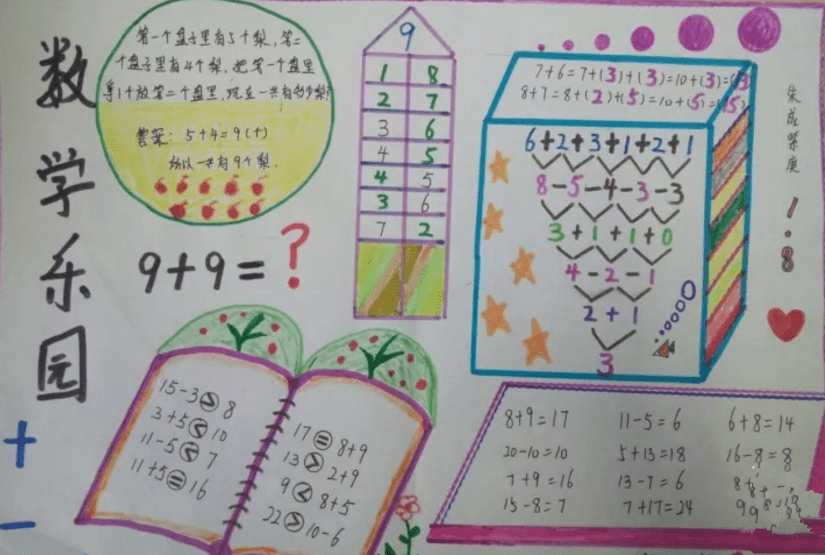 数学乐园
第一个盘子里有5个梨,第二
个盘子里有4个梨,把第一个盘里
拿1个放第二个盘里,现在一共有多少梨?
答案: 5+4=9(个)
所以一共有9个梨.
9+9=?
9
1 8
2 7
3 6
4 5
4 5
3 6
7 2
7+6=7+(3)+(3)=10+(3)=(13)
8+7=8+(2)+(5)=10+(5)=(15)
6+2+3+1+2+1
8-5-4-3-3
3+1+1+0
4-2-1
2+1
3
1.8
15-3>8
3+5<10
11-5<7
11+5=16
17=8+9
13>2+9
9<8+5
22>10-6
8+9=17 11-5=6 6+8=14
20-10=10 5+13=18 16-8=8
7+9=16 13-7=6
15-8=7 7+17=24
+
-